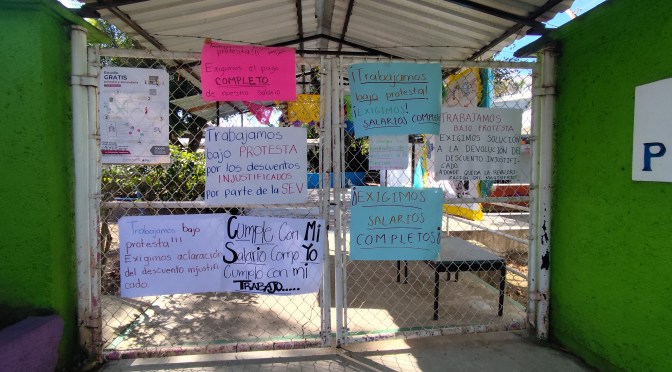 protesta!!
Exigimos el pago
COMPLETO
de nuestro salario
¡Trabajamos
bajo protesta!
¡EXIGIMOS!
SALARIOS COMPL
Trabajamos
bajo PROTESTA
por los descuentos
INJUSTIFICADOS
por parte de la SEV
TRABAJAMOS
BAJO PROTESTA
EXIGIMOS SOLUCIÓN
A LA DEVOLUCIÓN DEL
DESCUENTO INJUSTIFI-
CADO
¿DONDE QUEDA LA
¡EXIGIMOS
SALARIOS
COMPLETOS!
Trabajamos bajo
protesta!!!
Exigimos aclaración
del descuento injustifi
cado.
Cumple Con Mi
Salario Como Yo
Cumplo con mi
TRABAJO.....
GRATIS
P